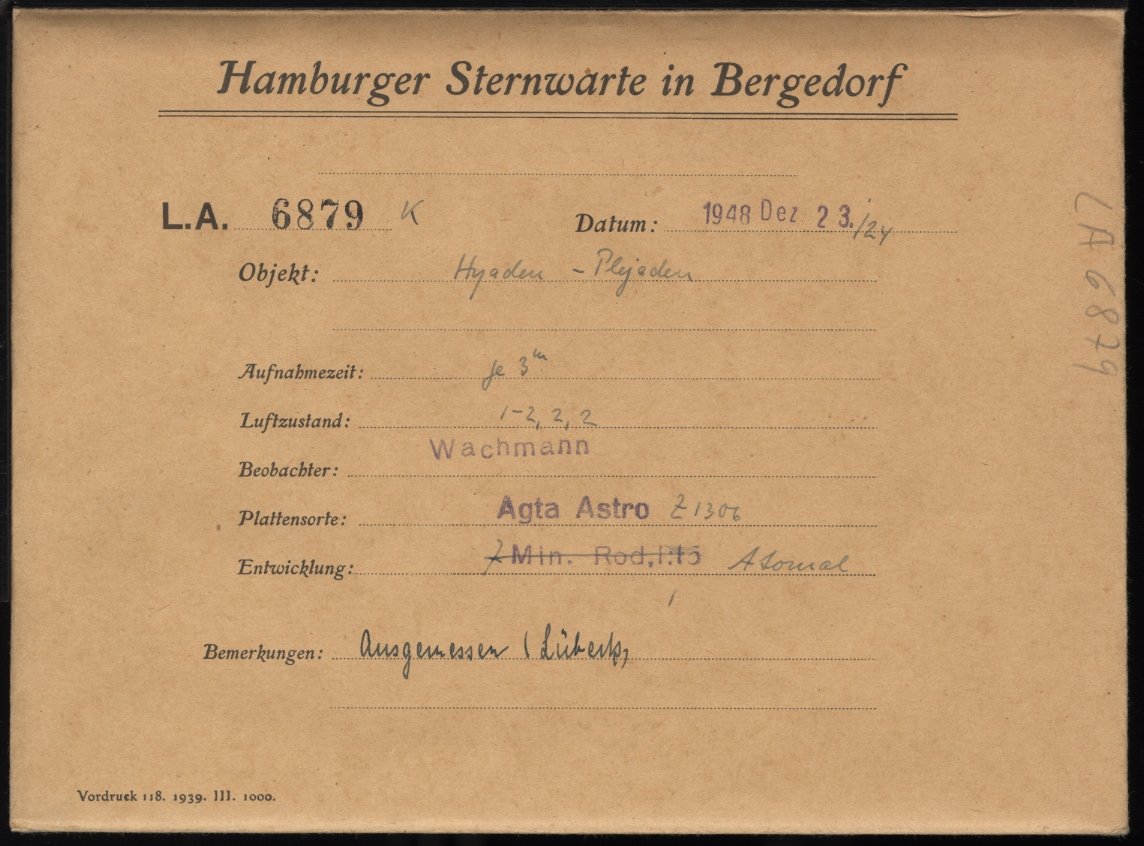 Hamburger Sternwarte in Bergedorf
L.A. 6879 K Datum: 1948 Dez 23./24
Objekt: Hyaden - Plejaden
Aufnahmezeit: je 3ᵐ
Luftzustand: 1-2, 2, 2
Wachmann
Beobachter:
Plattensorte: Agfa Astro Z 1306
Entwicklung: 7 Min. Rod. 1:15 Atomal
Bemerkungen: Ausgemessen (Lübeck)
Vordruck 118. 1939. III. 1000.
LA 6879